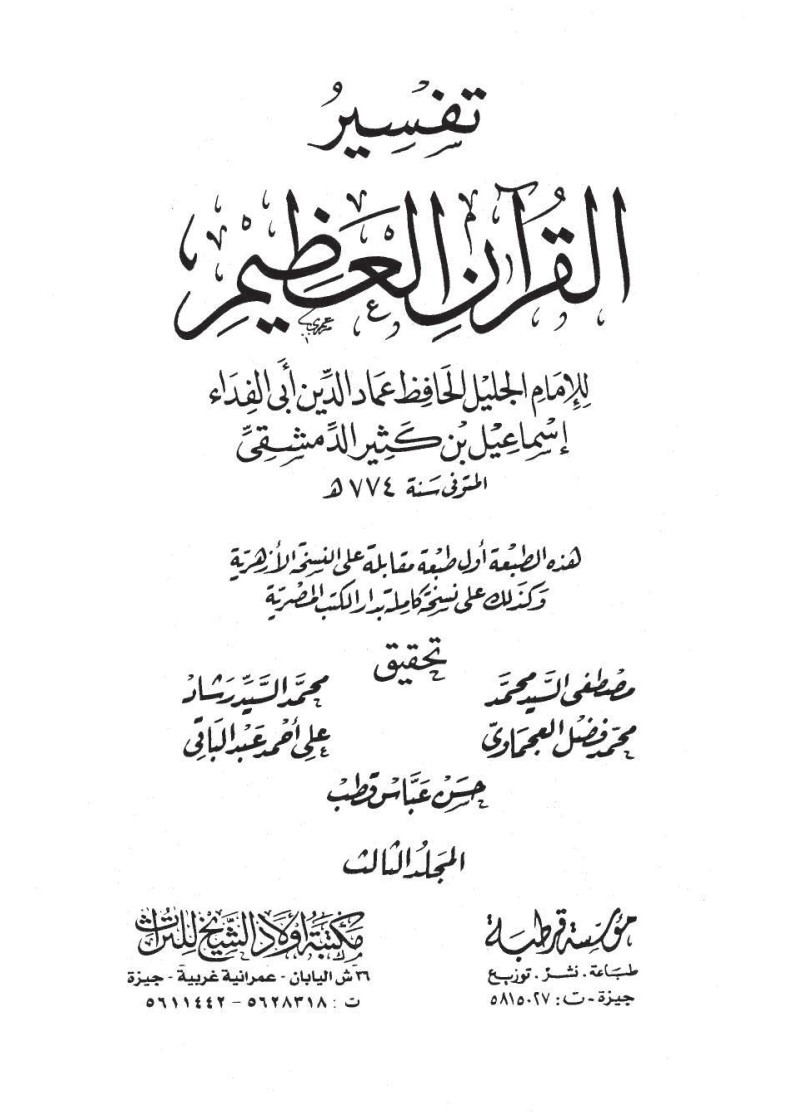 تفسير
القرآن العظيم
للإمام الجليل الحافظ عماد الدين أبي الفداء
إسماعيل بن كثير الدمشقي
المتوفى سنة ٧٧٤ ه
هذه الطبعة أول طبعة مقابلة على النسخة الأزهرية
وكذلك على نسخة كاملة بدار الكتب المصرية
تحقيق
مصطفى السيد محمد محمد السيد رشاد
محمد فضل العجماوي علي أحمد عبد الباقي
حسن عباس قطب
المجلد الثالث
مؤسسة قرطبة
طباعة . نشر . توزيع
جيزة - ت : ٥٨١٥٠٢٧
مكتبة أولاد الشيخ للتراث
٣٦ ش اليابان - عمرانية غربية - جيزة
ت : ٥٦٢٨٣١٨ - ٥٦١١٤٤٢